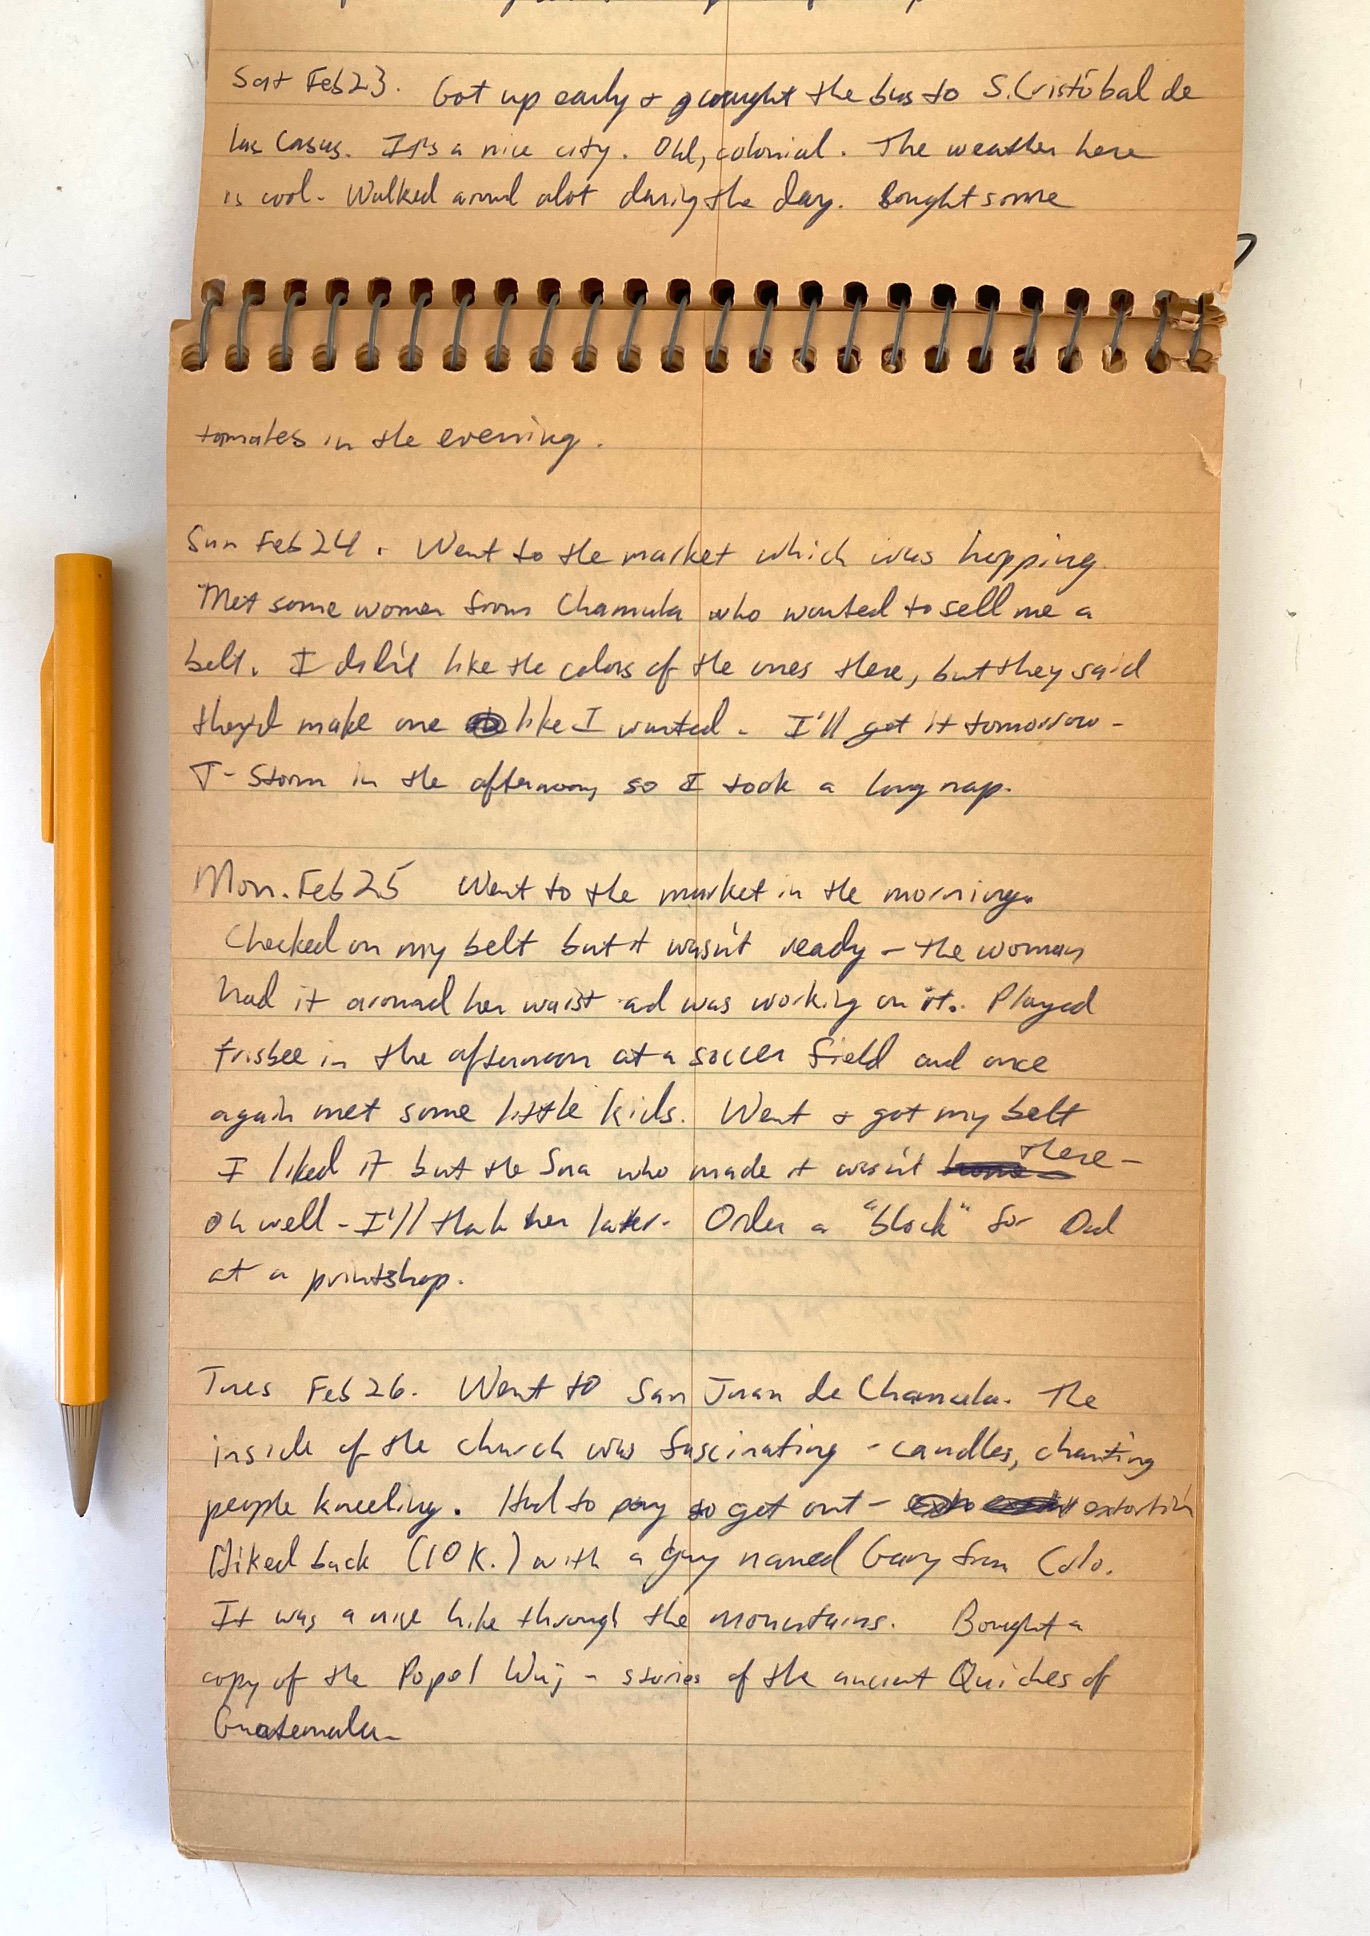 Sat Feb 23. Got up early + caught the bus to S. Cristóbal de
las Casas. It's a nice city. Old, colonial. The weather here
is cool. Walked around alot durig the day. Bought some
tamales in the evening.
Sun Feb 24. Went to the market which was hopping.
Met some women from Chamula who wanted to sell me a
belt. I didn't like the colors of the ones there, but they said
they'd make one like I wanted. I'll get it tomorrow -
T-Storm in the afternoon, so I took a long nap.
Mon. Feb 25 Went to the market in the morning.
Checked on my belt but it wasn't ready - the woman
had it around her waist ad was working on it. Played
frisbee in the afternoon at a soccer field and once
again met some little kids. Went + got my belt
I liked it but the Sra who made it wasn't there -
oh well - I'll thak her later. Order a "block" for Dad
at a printshop.
Tues Feb 26. Went to San Juan de Chamula. The
inside of the church was fascinating - candles, chanting
people kneeling. Had to pay to get out - extortion
Hiked back (10 K.) with a guy named Gary from Colo.
It was a nice hike through the mountains. Bought a
copy of the Popol Wuj - stories of the ancient Quiches of
Guatemala -